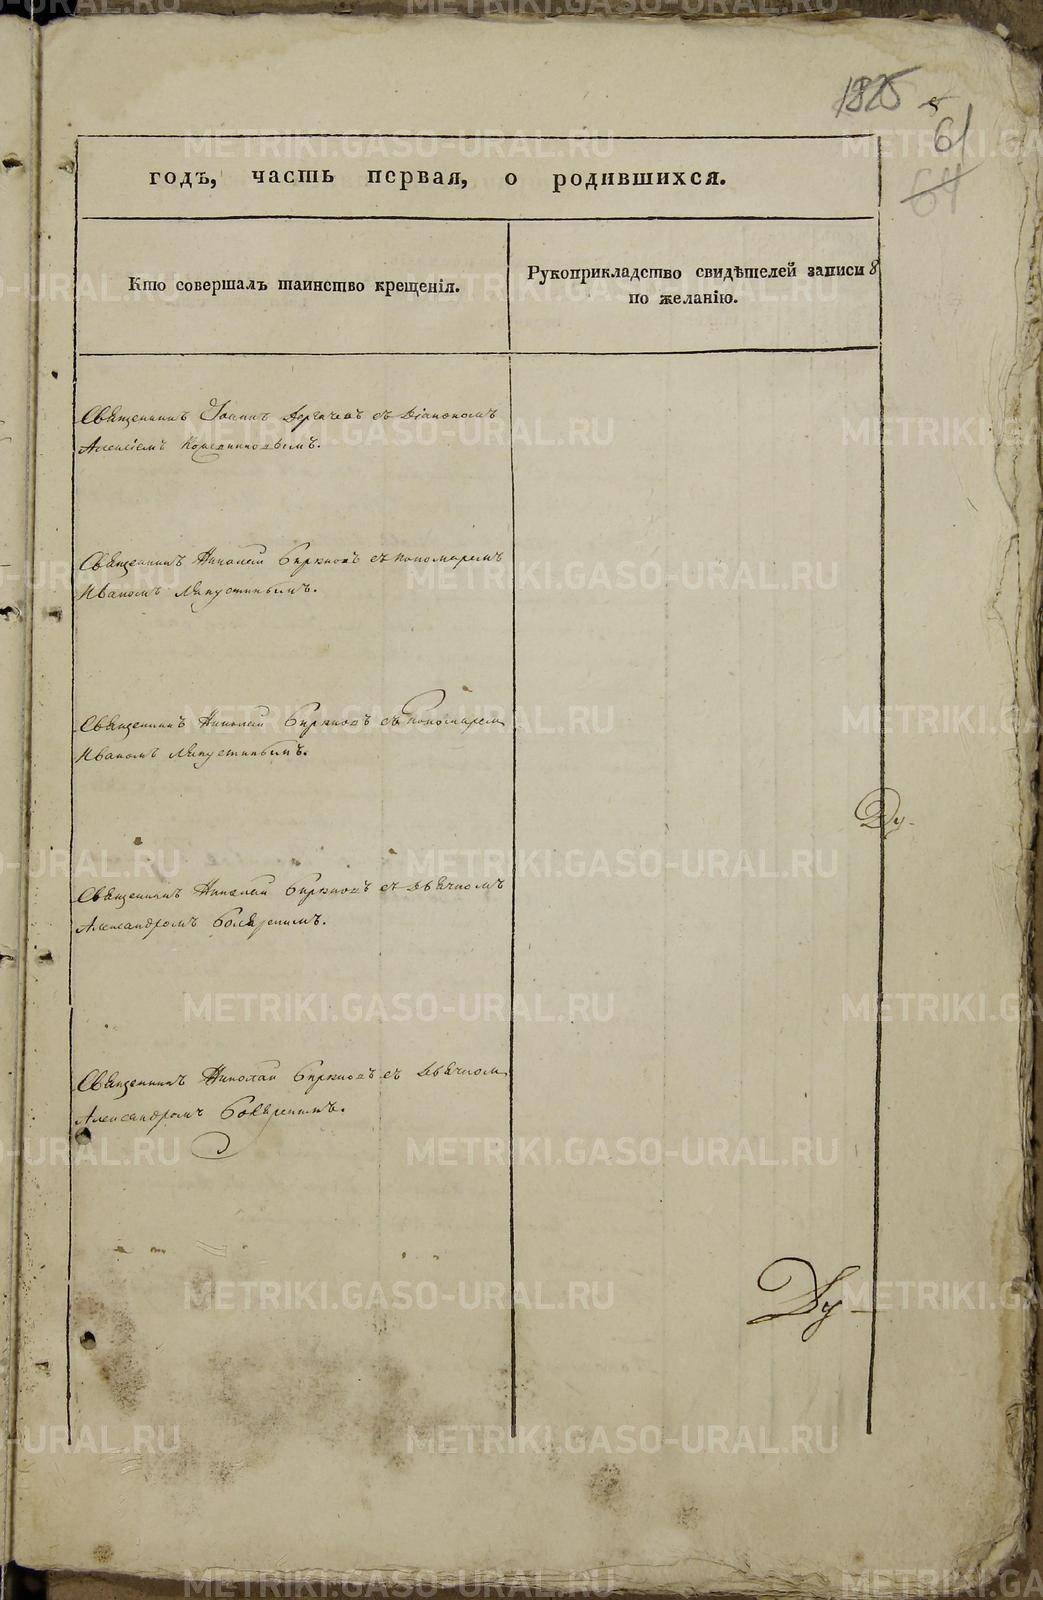 1825
61
64
годъ, часть первая, о родившихся.
Кто совершалъ таинство крещенія.
Рукоприкладство свидѣтелей записи 8
по желанію.
Священникъ Іоаннъ съ Діакономъ
Алексіемъ
Священникъ Николай Бирюковъ съ пономаремъ
Иваномъ Лапустинымъ.
Священникъ Николай Бирюковъ съ пономарем
Иваномъ Лапустинымъ.
Ду-
Священникъ Николай Бирюковъ съ дьячкомъ
Александромъ
Священникъ Николай Бирюковъ съ дьячком
Александромъ
Ду-
METRIKI.GASO-URAL.RU